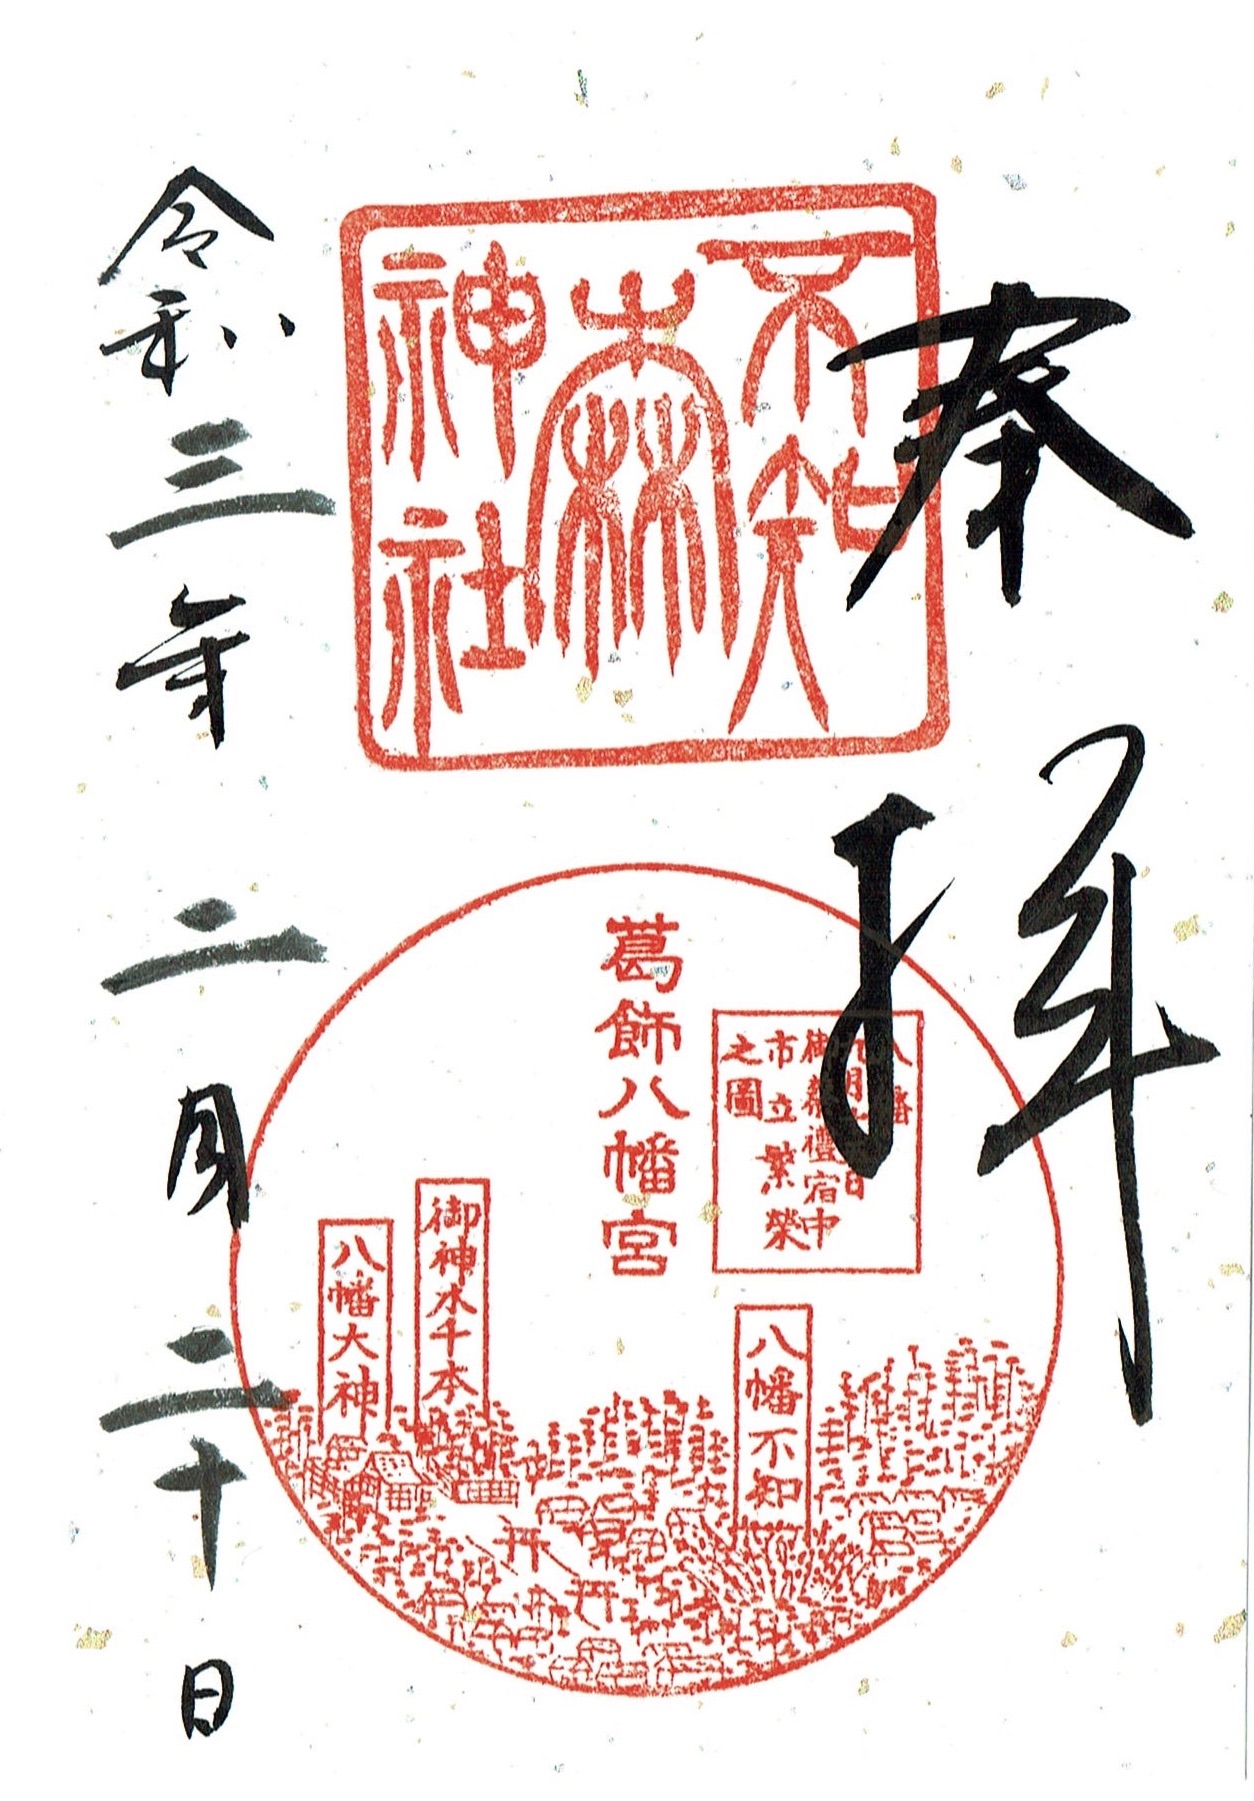 奉拝
不知
森
神社
葛飾八幡宮
御祭禮宿中
市立繁榮
之圖
八幡不知
御神水千本
八幡大神
令和三年二月二十日